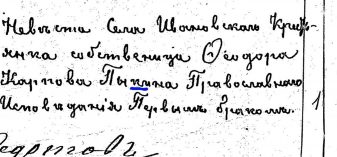 Невѣста Села Ивановскаго Кресть-
янка собственница Ѳеодора
Карпова Пыкина Православнаго
Исповѣданія Первымъ бракомъ.
1